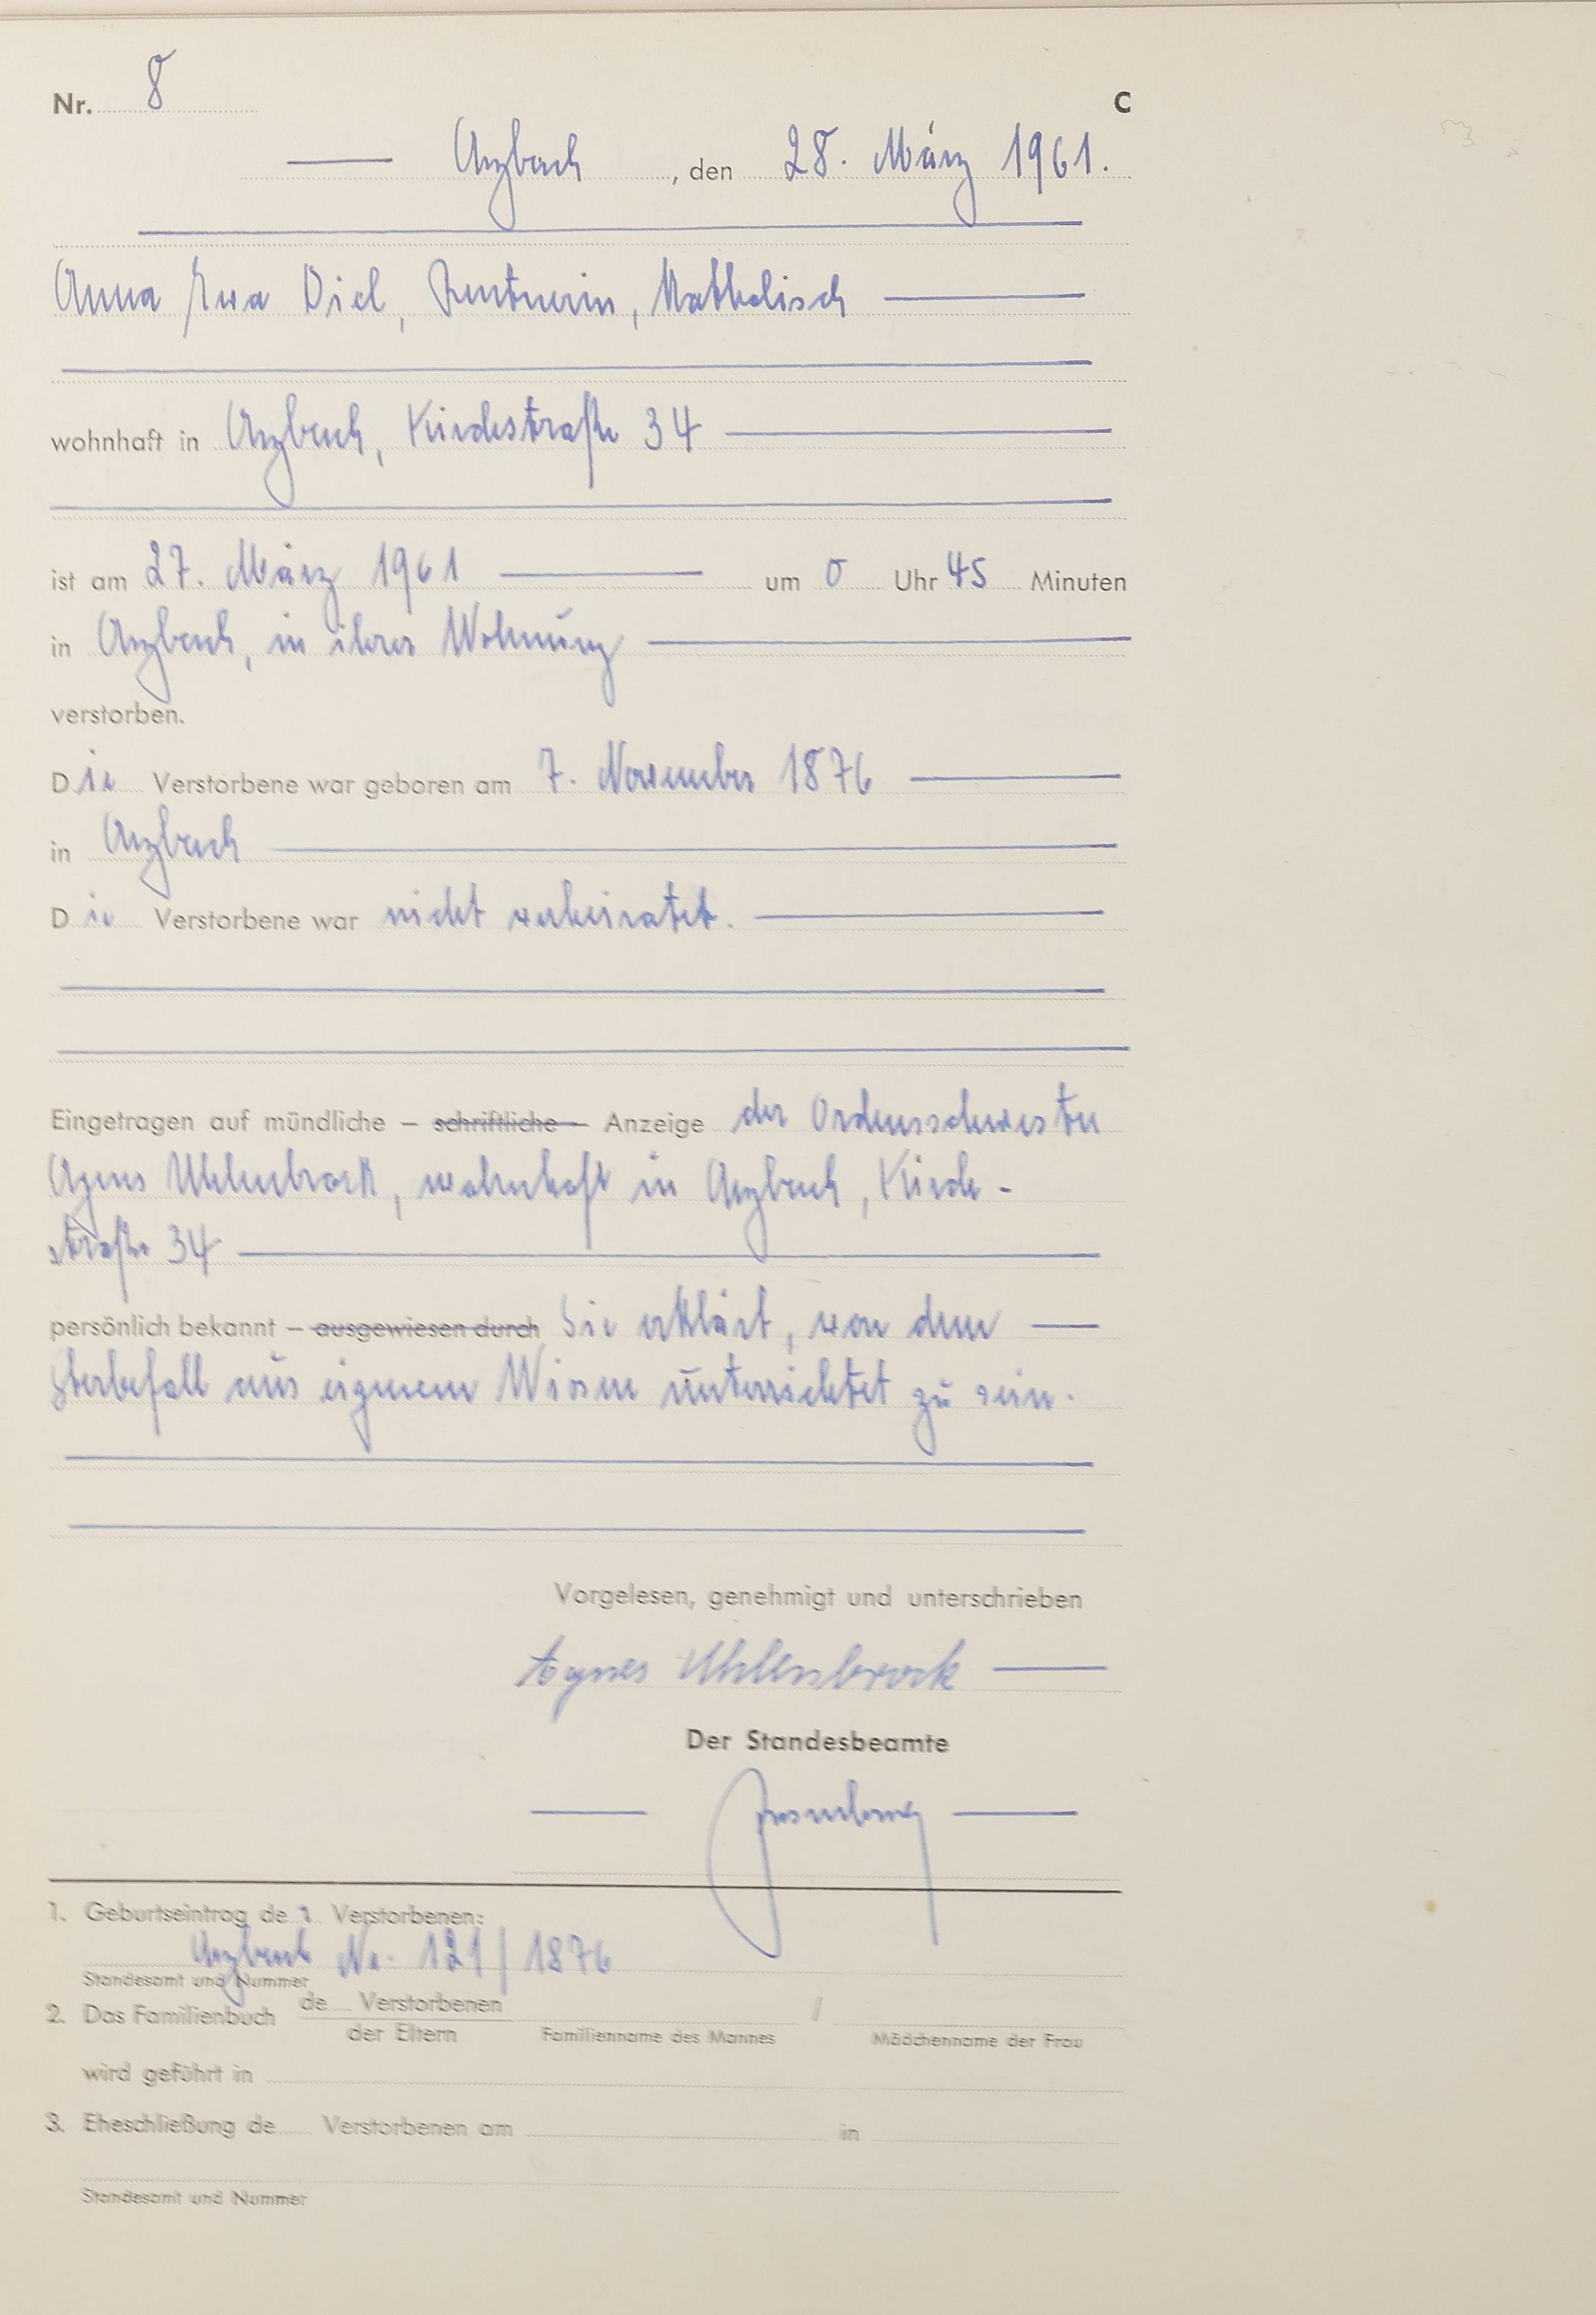 Nr. 8 C
Arzbach, den 28. März 1961.
Anna Eva Diel, Rentnerin, Katholisch
wohnhaft in Arzbach, Kirchstraße 34
ist am 27. März 1961 um 0 Uhr 45 Minuten
in Arzbach, in ihrer Wohnung
verstorben.
Die Verstorbene war geboren am 7. November 1876
in Arzbach
Die Verstorbene war nicht verheiratet.
Eingetragen auf mündliche – schriftliche – Anzeige der Ordensschwester
Agnes Uhlenbrock, wohnhaft in Arzbach, Kirch-
straße 34
persönlich bekannt – ausgewiesen durch Sie erklärt, von dem
Sterbefall aus eigenem Wissen unterrichtet zu sein.
Vorgelesen, genehmigt und unterschrieben
Agnes Uhlenbrock
Der Standesbeamte
1. Geburtseintrag der Verstorbenen:
Arzbach Nr. 121/1876
Standesamt und Nummer
de Verstorbenen /
2. Das Familienbuch
der Eltern Familienname des Mannes Mädchenname der Frau
wird geführt in
3. Eheschließung de Verstorbenen am in
Standesamt und Nummer